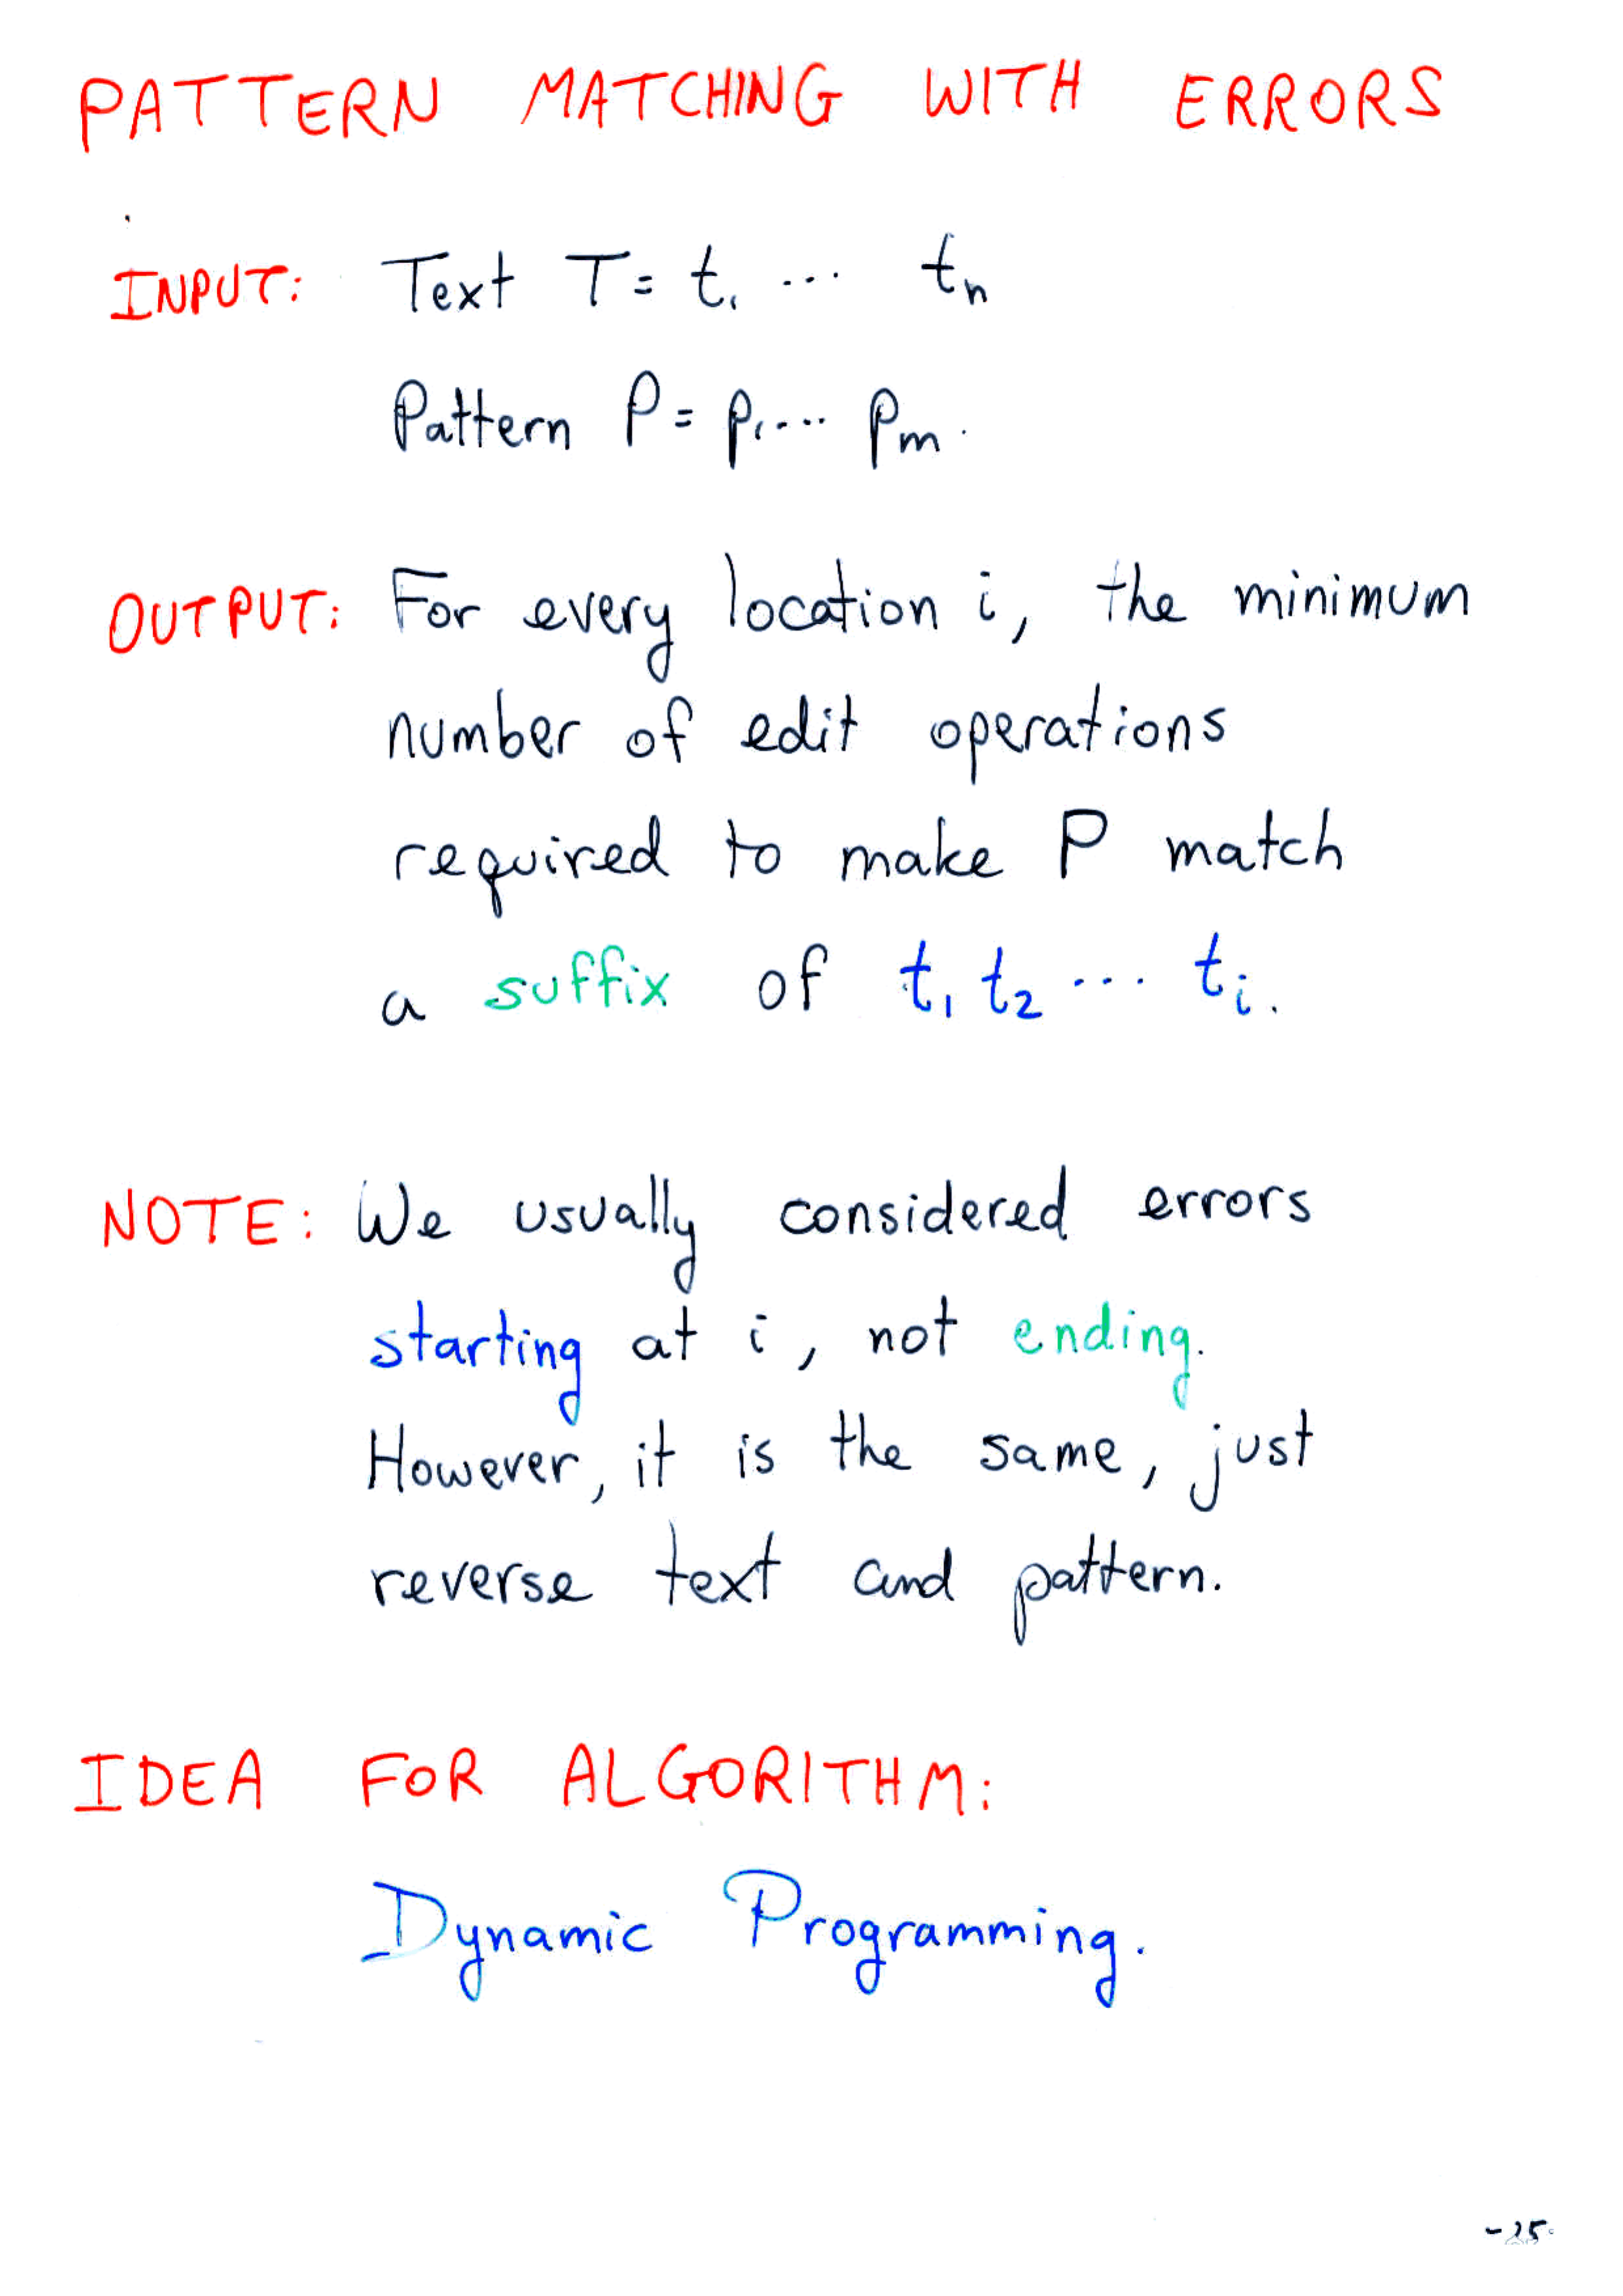 PATTERN MATCHING WITH ERRORS
INPUT: Text T = t₁ ... tₙ
Pattern P = p₁ ... pₘ.
OUTPUT: For every location i, the minimum
number of edit operations
required to make P match
a suffix of t₁ t₂ ... tᵢ.
NOTE: We usually considered errors
starting at i, not ending.
However, it is the same, just
reverse text and pattern.
IDEA FOR ALGORITHM:
Dynamic Programming.
-25-